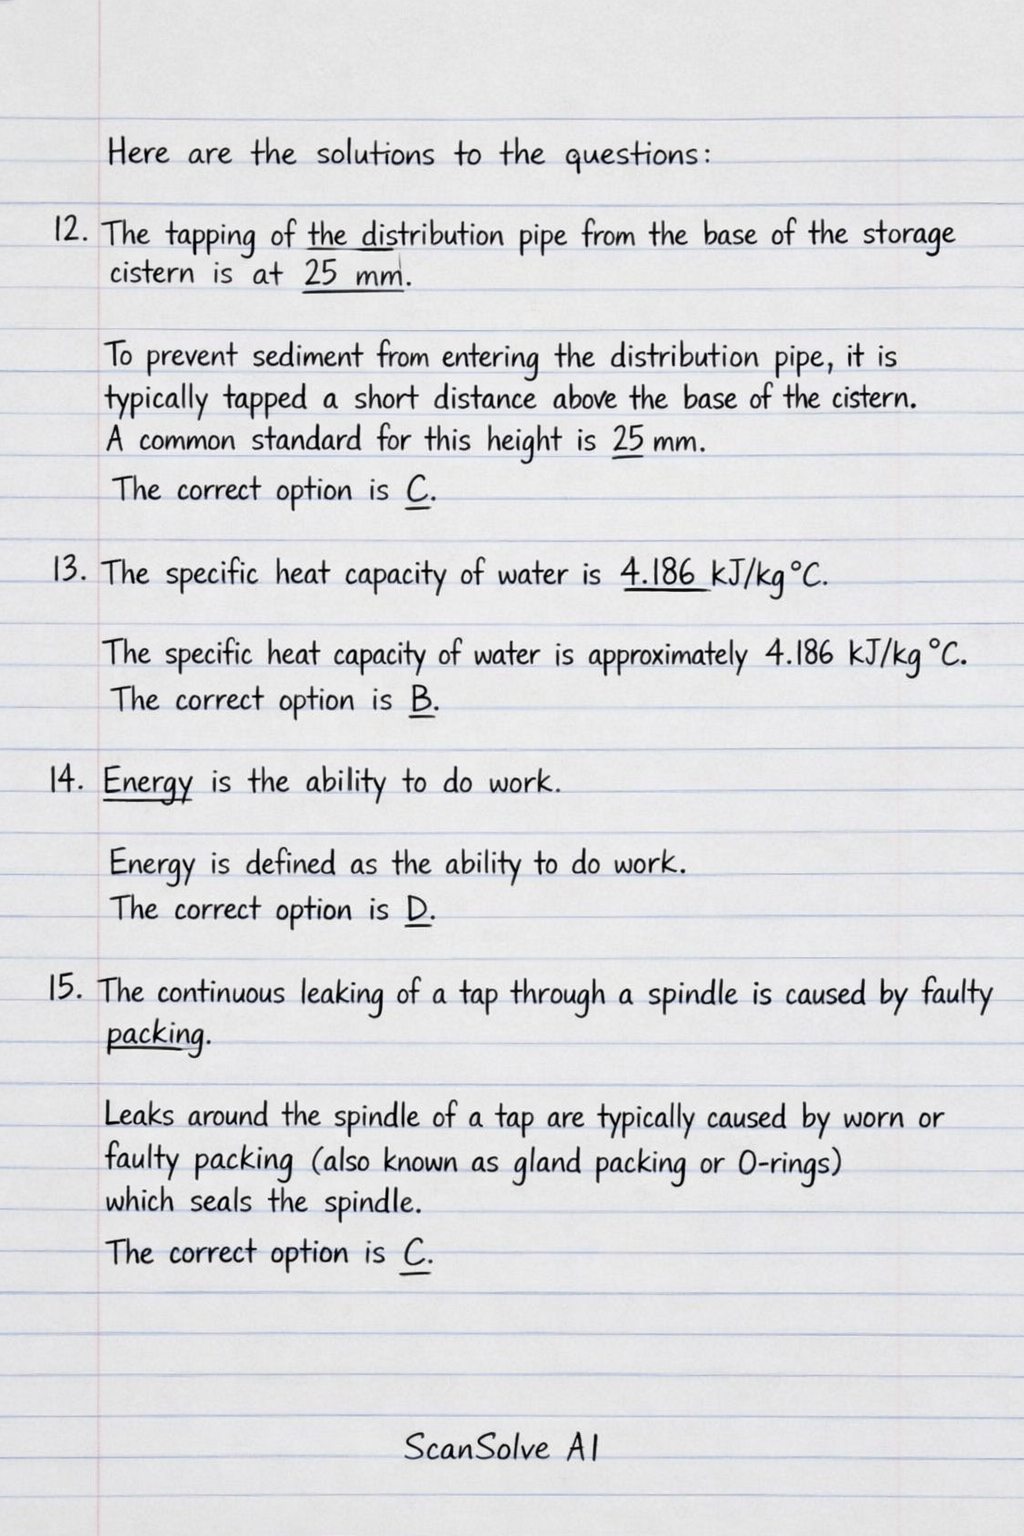 Here are the solutions to the questions:
12. The tapping of the distribution pipe from the base of the storage
cistern is at 25 mm.
To prevent sediment from entering the distribution pipe, it is
typically tapped a short distance above the base of the cistern.
A common standard for this height is 25 mm.
The correct option is C.
13. The specific heat capacity of water is 4.186 kJ/kg°C.
The specific heat capacity of water is approximately 4.186 kJ/kg°C.
The correct option is B.
14. Energy is the ability to do work.
Energy is defined as the ability to do work.
The correct option is D.
15. The continuous leaking of a tap through a spindle is caused by faulty
packing.
Leaks around the spindle of a tap are typically caused by worn or
faulty packing (also known as gland packing or O-rings)
which seals the spindle.
The correct option is C.
ScanSolve AI